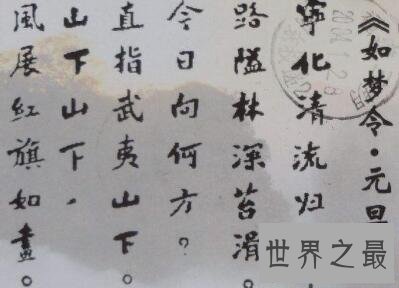 《如梦令·元旦
寧化清流归
路隘林深苔滑。
今日向何方？
直指武夷山下。
山下山下，
風展红旗如畫。
世界之最